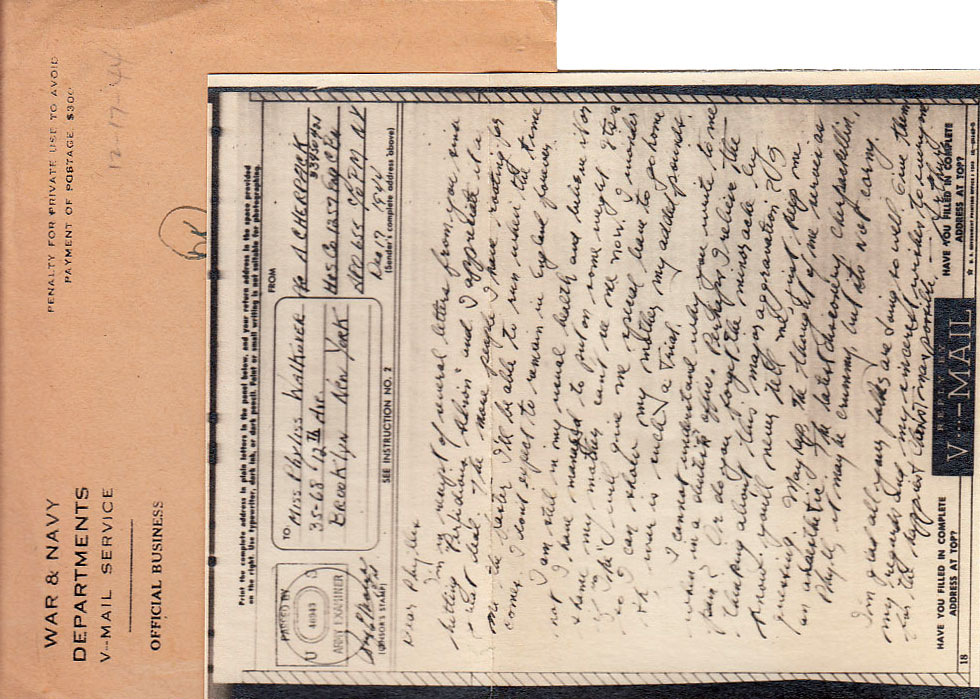 WAR & NAVY
DEPARTMENTS
V--MAIL SERVICE
OFFICIAL BUSINESS
PENALTY FOR PRIVATE USE TO AVOID
PAYMENT OF POSTAGE. $300
12-17-44
Print the complete address in plain letters in the panel below, and your return address in the space provided
on the right. Use typewriter, dark ink, or dark pencil. Faint or small writing is not suitable for photographing.
PASSED BY
U S
ARMY EXAMINER
(CENSOR'S STAMP)
TO
MISS PHYLISS WALKUVER
35-68 12TH AVE.
BROOKLYN NEW YORK
SEE INSTRUCTION NO. 2
FROM
A CHERPACK
HQS. CO. 1257 ENG C BN
APO 655 C/O P.M. N.Y.
DEC 17 1944
(Sender's complete address above)
Dear Phyliss
I'm in receipt of several letters from you since
hitting and I appreciate it a
great deal. The more people I have rooting for
me the better I'll be able to run when the time
comes. I don't expect to remain in England forever
I am still in my usual health and believe it or
not I have managed to put on some weight. It's a
shame my mother can't see me now. I wonder
if the "C.O." will give me special leave to go home
so I can show my mother my added pounds.
The war is such a trial.
I cannot understand why you write to me
when in a dentist's office. Perhaps I relieve the
pain? Or do you forget the minor ache by
thinking about this major aggravation? I
know you'll never tell me, just keep me
guessing. Mayhaps the thought of me serves as
an anaesthetic. The latest discovery. Cherpackillin,
Phyll, it may be crummy but it's not corny.
I'm glad all your folks are doing so well. Give them
my regards and my sincerest wishes to everyone
for the happiest Christmas possible.
HAVE YOU FILLED IN COMPLETE
ADDRESS AT TOP?
REPLY BY
V--MAIL
HAVE YOU FILLED IN COMPLETE
ADDRESS AT TOP?
18